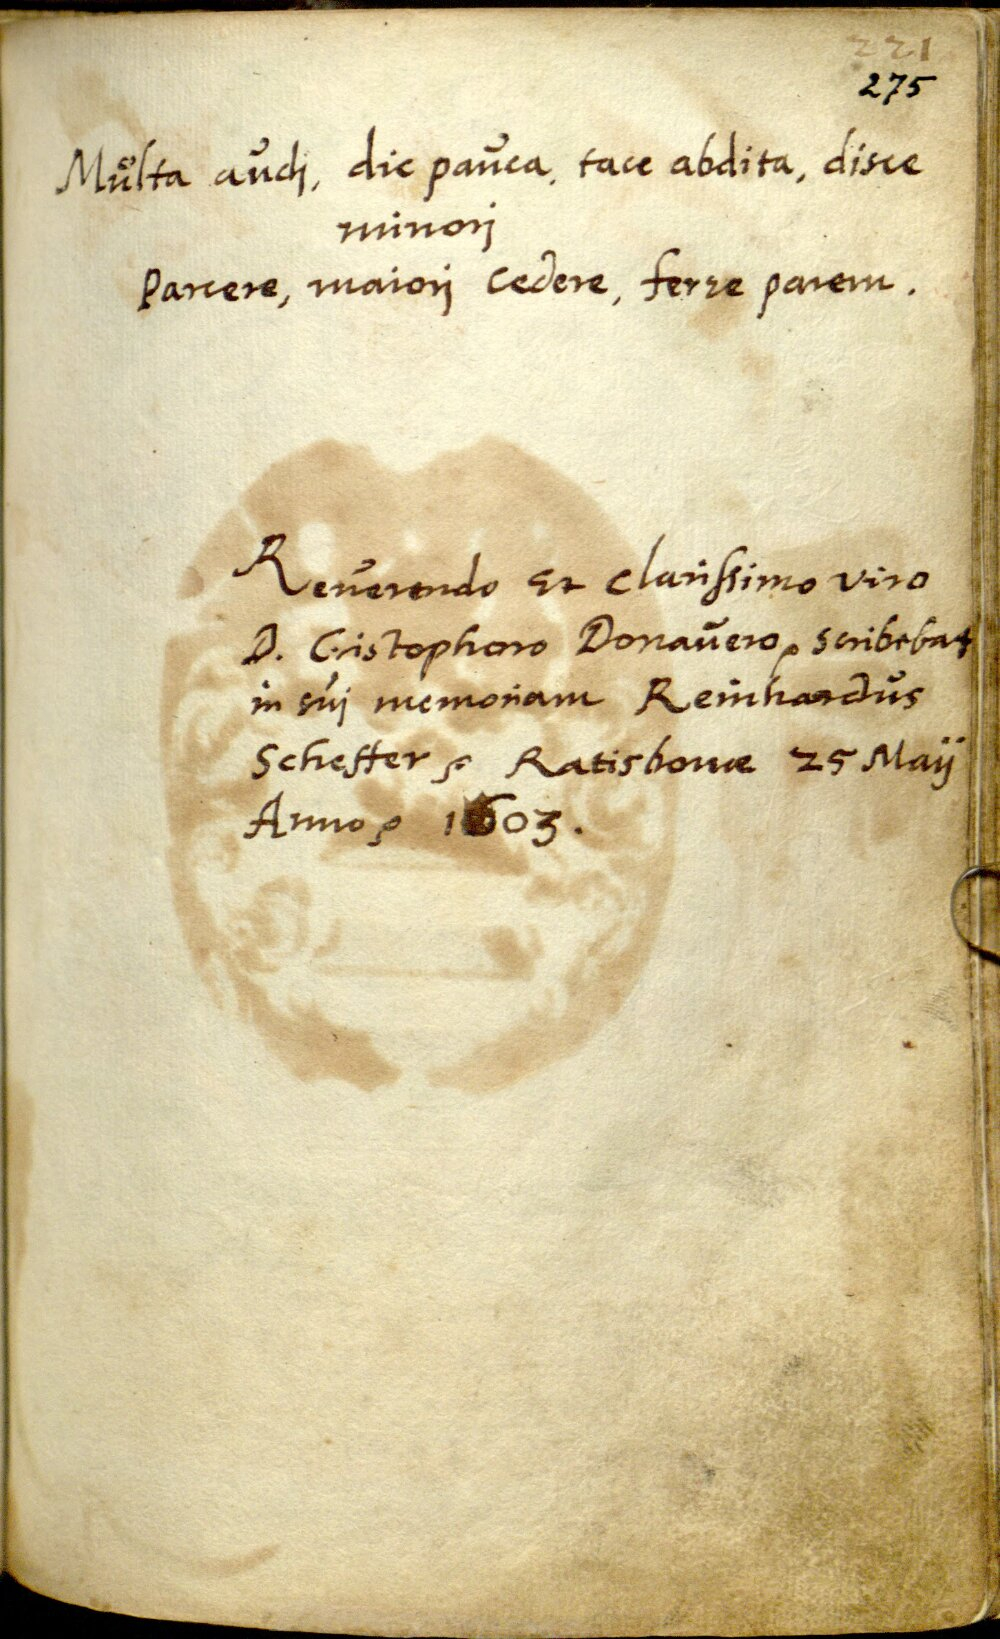 221
275
Multa audj, dic pauca, tace abdita, disce
minorj
Parcere, maiorj cedere, ferre parem.
Reuerendo et clarissimo viro
D. Cristophoro Donauero scribebat
in suj memoriam Reinhardus
Scheffer Ratisbonae 25 Maij
Anno 1603.